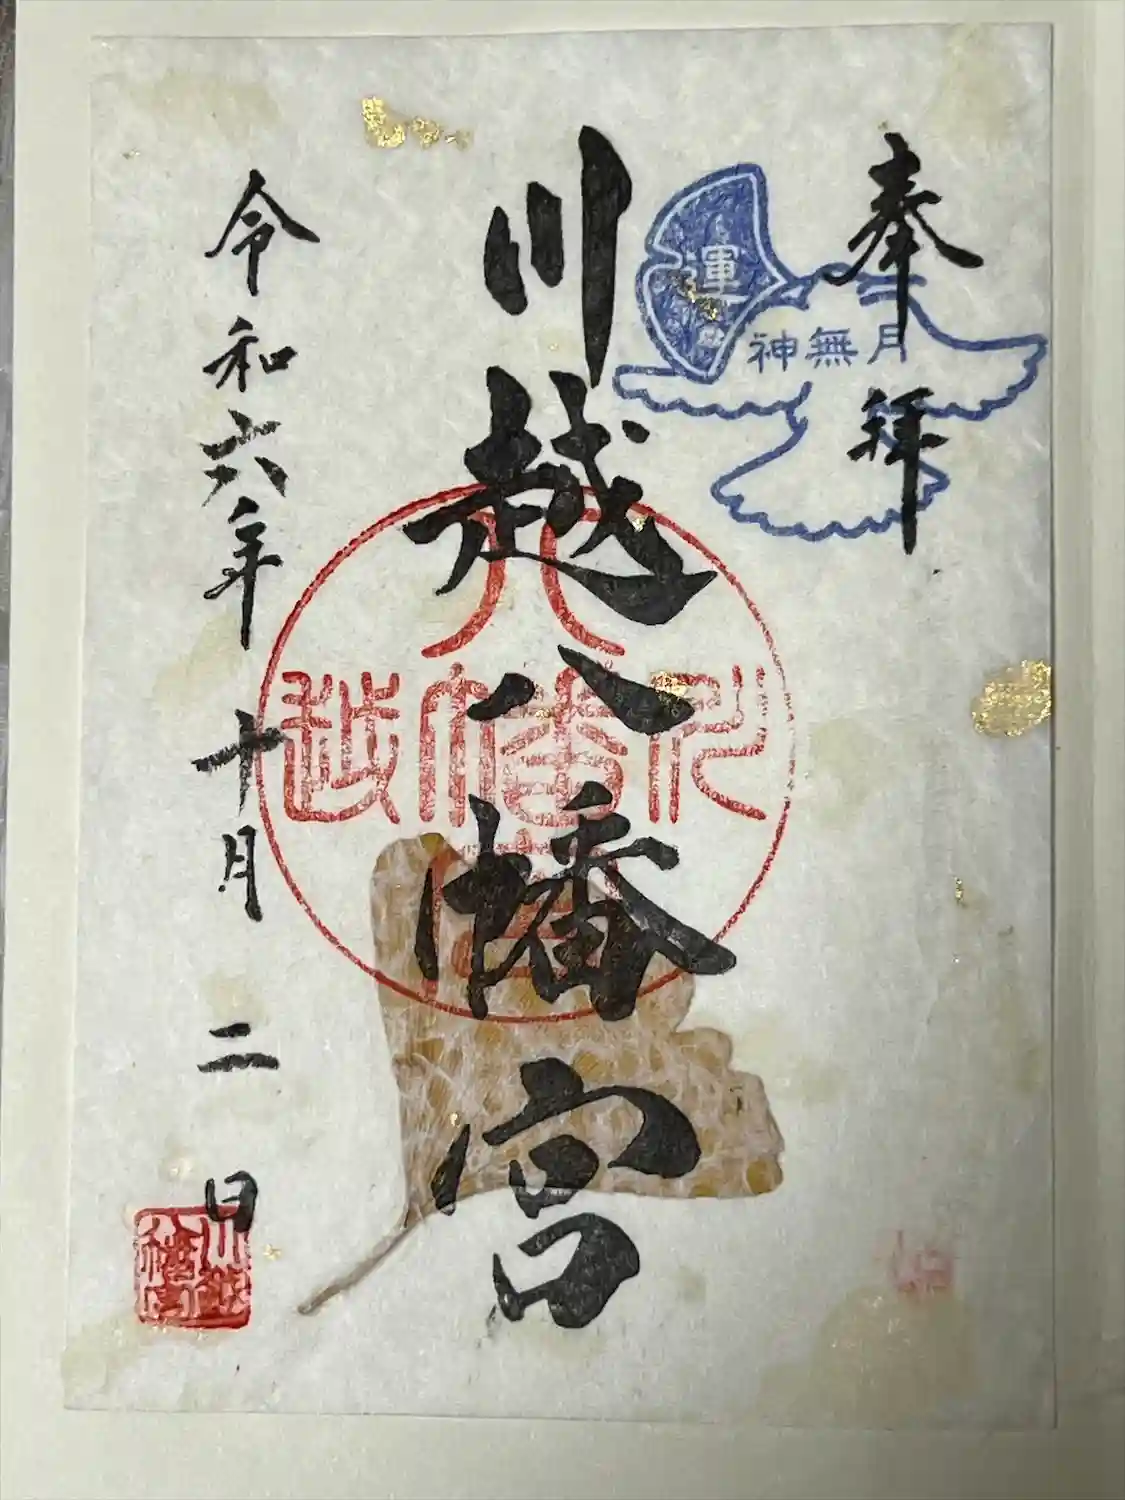 奉拝
運
神無月
川越八幡宮
八
川
幡
越
令和六年十月二日